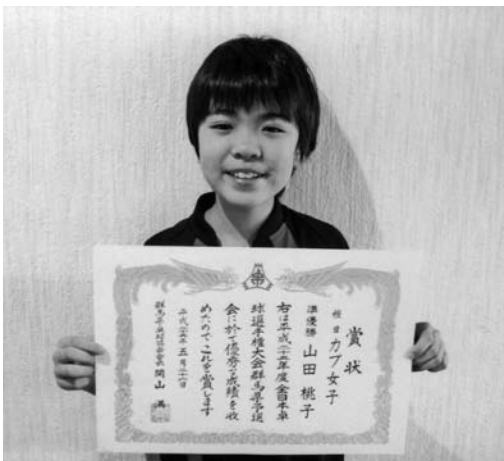 賞状
種目 カブ女子
準優勝 山田桃子
右は平成二十五年度全日本卓
球選手権大会群馬県予選
会に於て優秀な成績を收
めたのでこれを賞します
平成二十五年五月
群馬県卓球協会会長 関山